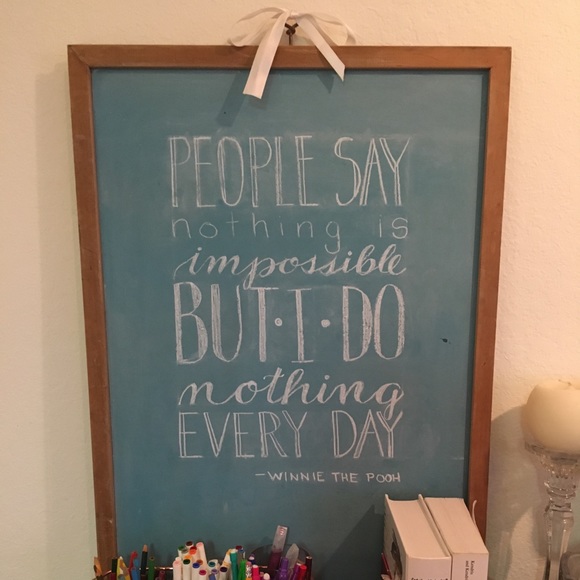 PEOPLE SAY
nothing is
impossible
BUT·I·DO
nothing
EVERY DAY
-WINNIE THE POOH